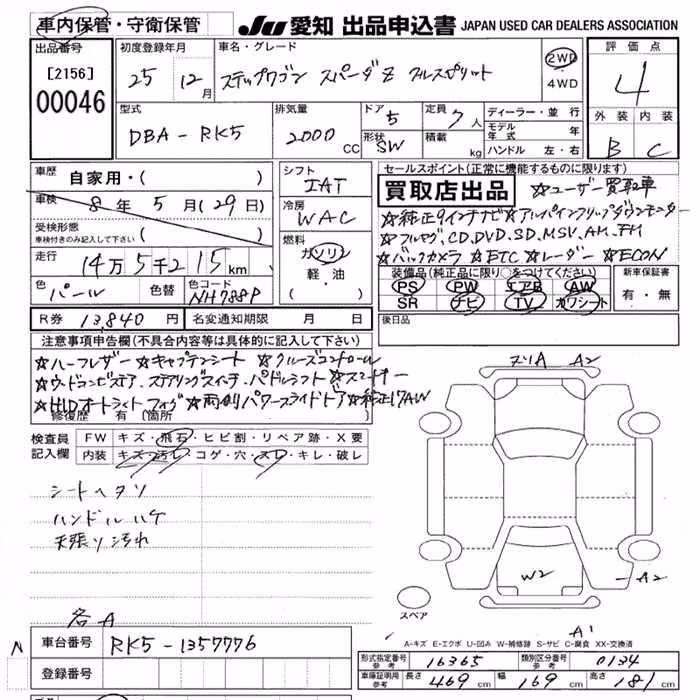 車内保管・守衛保管
JU 愛知 出品申込書 JAPAN USED CAR DEALERS ASSOCIATION
出品番号
[2156]
00046
初度登録年月
25 12月
車名・グレード
ステップワゴン スパーダZ クルスピリット
2WD
・
4WD
評価点
4
外装 内装
B C
型式
DBA-RK5
排気量
2000 CC
ドア 5
形状 SW
定員 7人
積載 kg
ディーラー・並行
モデル年式 年
ハンドル 左・右
車歴 自家用・( )
車検 8年 5月(29日)
受検形態
車検付きのみ記入して下さい ( )
走行 14万5千215km
色 パール
色替
色コード NH788P
シフト IAT
冷房 WAC
燃料 ガソリン
軽・油
( )
セールスポイント(正常に機能するものに限ります)
買取店出品 ☆ユーザー買取車
☆純正9インチナビ☆アルパインフリップダウンモニター
☆フルセグ、CD、DVD、SD、MSV、AM、FM
☆バックカメラ ☆ETC ☆レーダー ☆ECON
装備品(純正品に限り○をつけてください)
PS PW エアB AW
SR ナビ TV カワシート
新車保証書
有・無
後日品
R券 13,840円
名変通知期限 月 日
注意事項申告欄(不具合内容等は具体的に記入して下さい)
☆ハーフレザー ☆キャプテンシート ☆クルーズコントロール
☆ウッドコンビステア、ステアリングスイッチ、パドルシフト ☆スマートキー
☆HIDオートライト フォグ☆両側パワースライドドア☆純正17AW
修復歴 有 (箇所
検査員記入欄
FW キズ・飛石・ヒビ割・リペア跡・X要
内装 キズ・汚レ・コゲ・穴・スレ・キレ・破レ
シートヘタリ
ハンドルハゲ
天張リ汚れ
各A
ズリA A2
W2
A2
スペア
A'
A-キズ E-エクボ U-凹み W-補修跡 S-サビ C-腐食 XX-交換済
N
車台番号 RK5-1357776
登録番号
形式指定番号 参考 16365
類別区分番号 参考 0134
車庫証明用 参考 長さ 469cm 幅 169cm 高さ 181cm